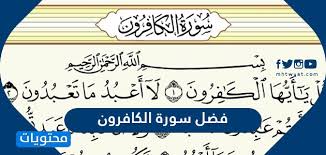 سورة الكافرون
بِسْمِ اللَّهِ الرَّحْمَٰنِ الرَّحِيمِ
قُلْ يَا أَيُّهَا الْكَافِرُونَ ١ لَا أَعْبُدُ مَا تَعْبُدُونَ
mhtwyat.com
فضل سورة الكافرون
محتويات